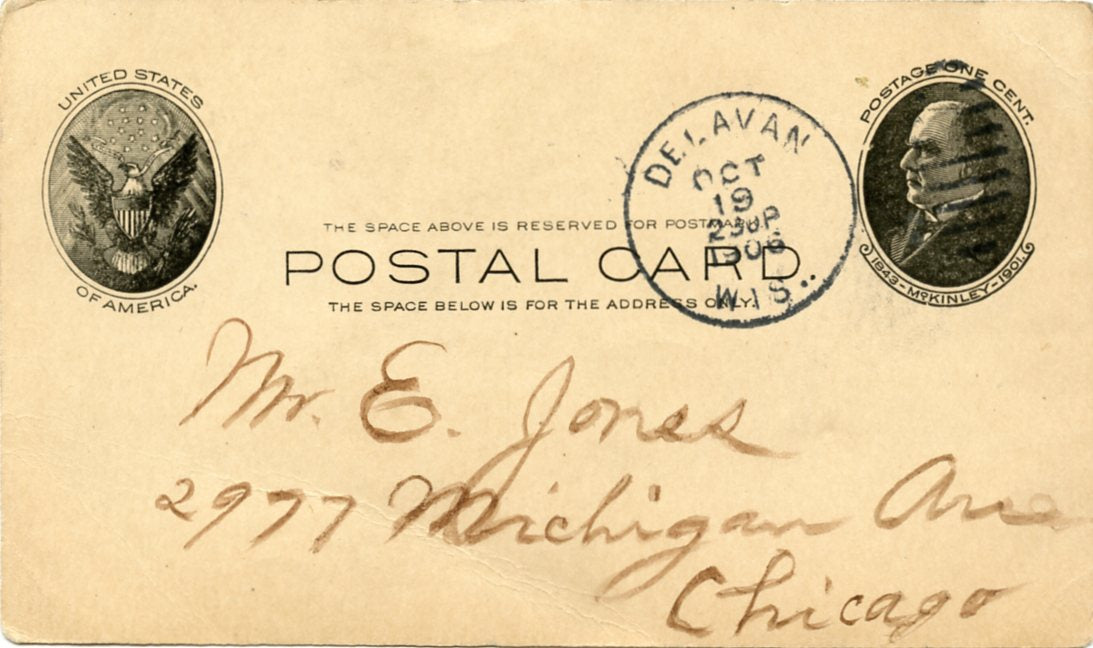 UNITED STATES
OF AMERICA.
POSTAGE ONE CENT.
1843-McKINLEY-1901.
DELAVAN
OCT
19
230P
1906
WIS.
THE SPACE ABOVE IS RESERVED FOR POSTMARK.
POSTAL CARD.
THE SPACE BELOW IS FOR THE ADDRESS ONLY.
Mr. E. Jones
2977 Michigan Ave
Chicago